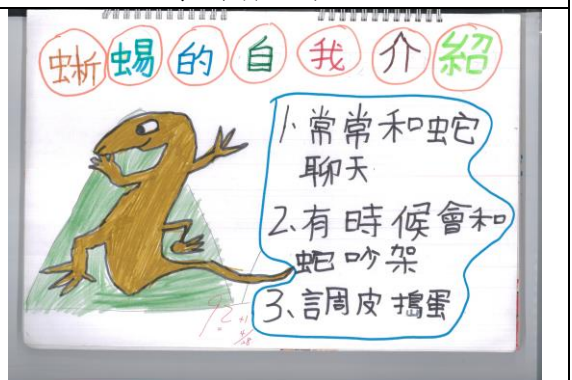 蜥蜴的自我介紹
1、常常和蛇
聊天
2、有時候會和
蛇吵架
3、調皮搗蛋